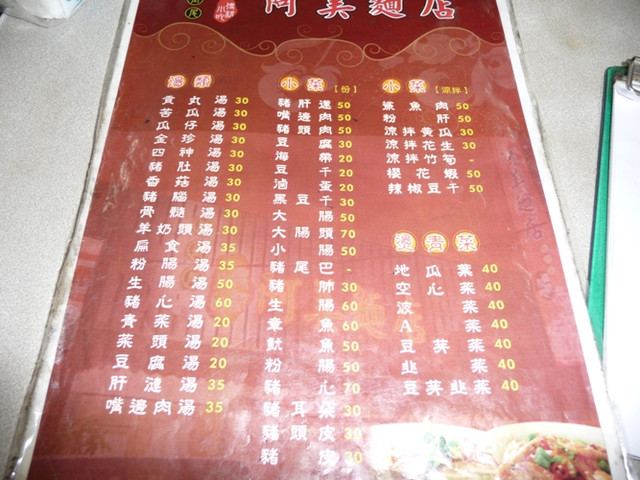 小吃
阿美麵店
湯類
貢丸湯 30
苦瓜湯 30
瓜仔湯 30
金珍湯 30
四神湯 30
豬肚湯 30
香菇湯 30
豬腦湯 30
骨髓湯 30
羊奶頭湯 30
扁食湯 35
粉腸湯 35
生腸湯 50
豬心湯 60
青菜湯 20
菜頭湯 20
豆腐湯 20
肝連湯 35
嘴邊肉湯 35
小菜【份】
豬肝連 50
嘴邊肉 50
豬頭肉 50
豆腐 30
海帶 20
豆干 20
滷蛋 20
黑豆干 30
大腸 50
大腸頭 70
小腸 50
豬尾巴 -
豬肺 30
生腸 60
章魚 60
魷魚 50
粉腸 50
豬心 70
豬耳朵 30
豬頭皮 30
豬皮 30
小菜【涼拌】
鯊魚肉 50
粉肝 50
涼拌黃瓜 30
涼拌花生 30
涼拌竹筍 -
櫻花蝦 50
辣椒豆干 50
燙青菜
地瓜葉 40
空心菜 40
波菜 40
A菜 40
豆芽菜 40
韭菜 40
豆芽韭菜 40